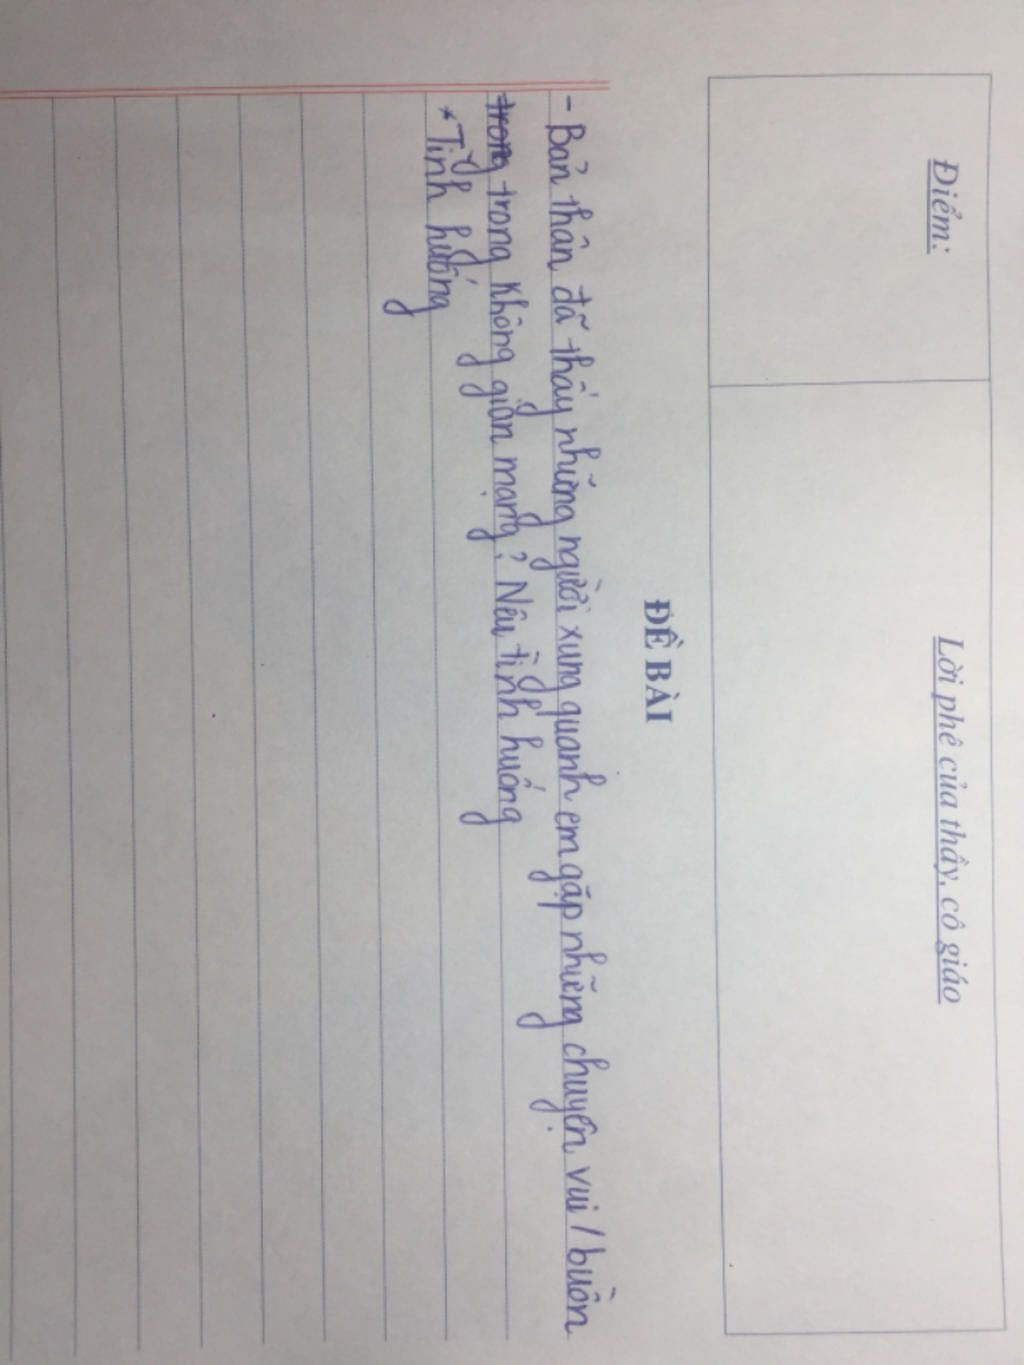 Điểm:
Lời phê của thầy, cô giáo
ĐỀ BÀI
- Bản thân đã thấy những người xung quanh em gặp những chuyện vui / buồn
trong trong không gian mạng? Nêu tình huống
* Tình huống